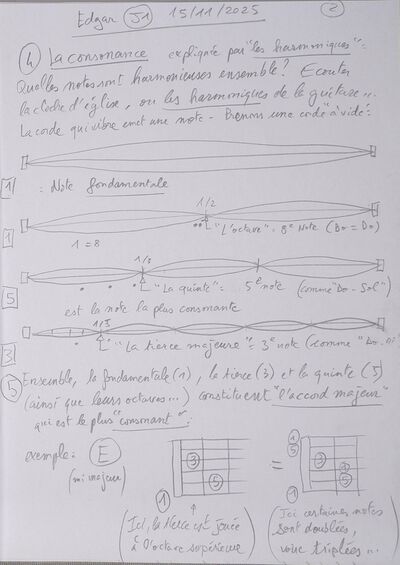 Edgar S1 15/11/2025 2
4 La consonance expliquée par "les harmoniques" :
Quelles notes sont harmonieuses ensemble ? Ecouter
la cloche d'église, ou les harmoniques de la guitare...
La corde qui vibre emet une note - Prenons une corde "à vide" :
1 : Note fondamentale
1/2
1 1 = 8 "L'octave" = 8e Note (Do = Do)
1/3
5 "La quinte" = 5e note (comme "Do - Sol")
est la note la plus consonante
1/5
3 "La tierce majeure" = 3e note (comme "Do - Mi"
5 Ensemble, la fondamentale (1), la tierce (3) et la quinte (5)
(ainsi que leurs octaves...) constituent "l'accord majeur"
qui est le plus "consonant".
exemple : E
(mi majeur)
3 5 1
=
1 5 3 1 5 1
(Ici, la tierce est jouée
à l'octave supérieure)
(Ici certaines notes
sont doublées,
voire triplées...